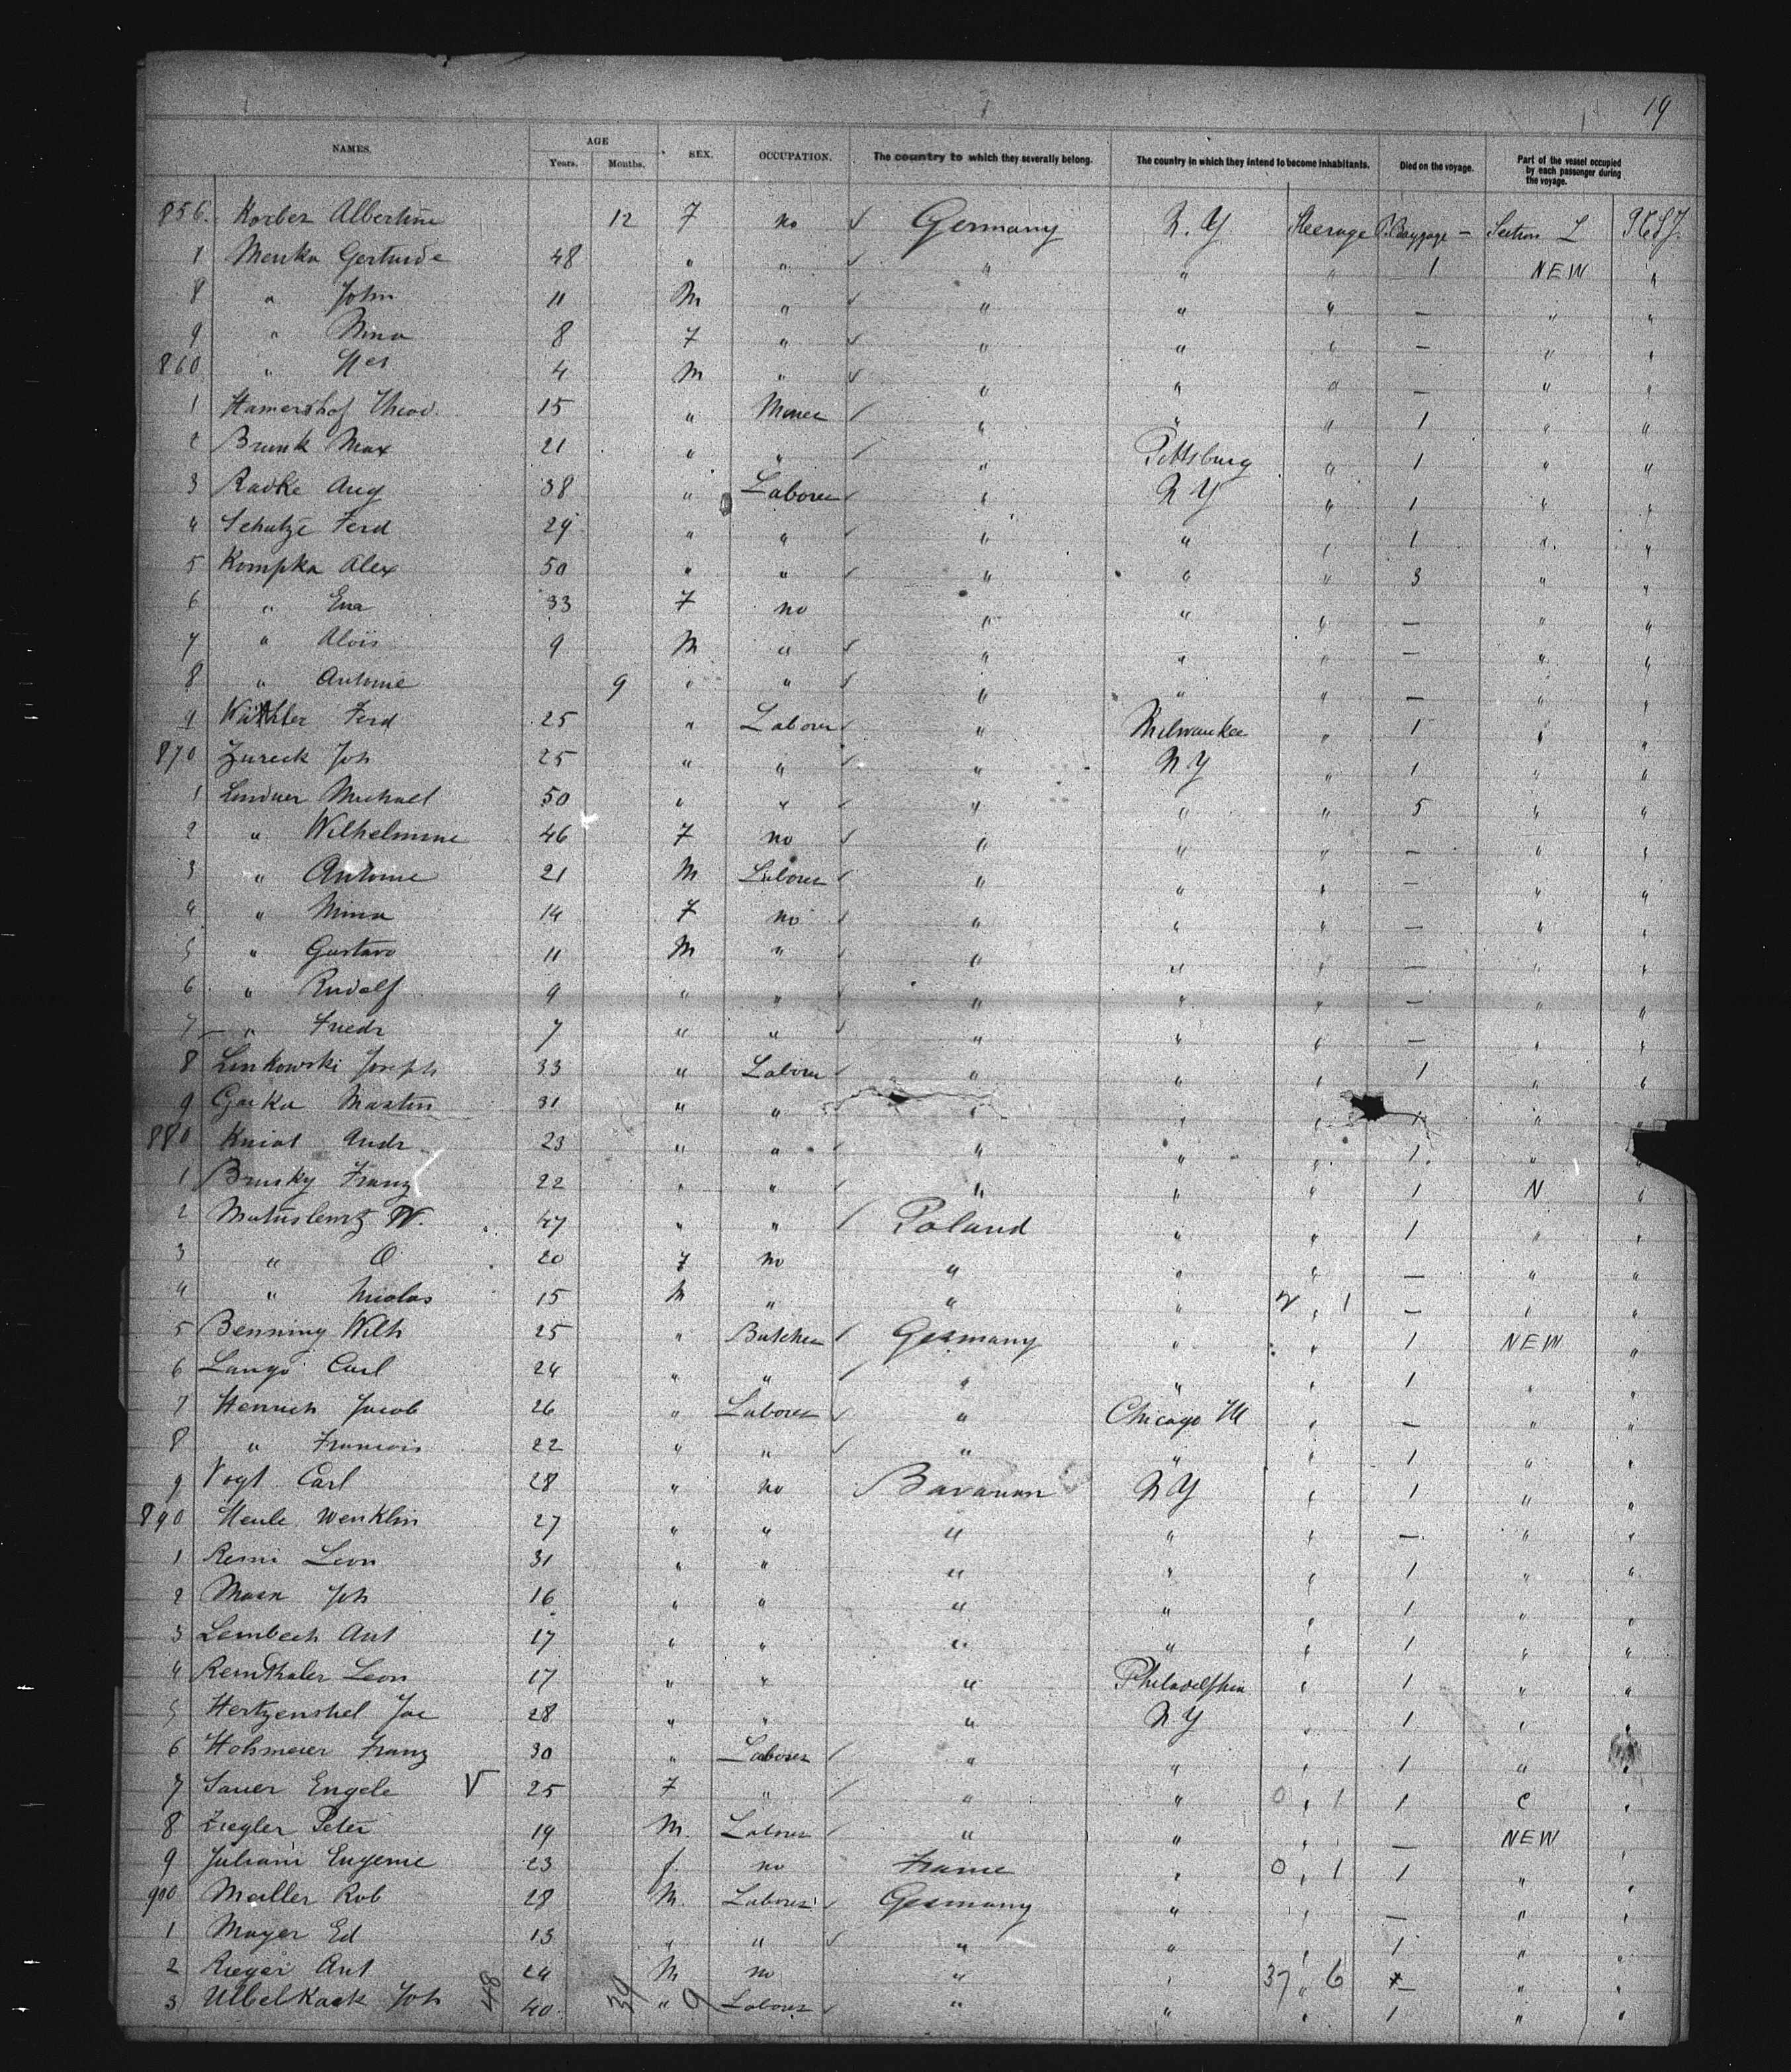 19
NAMES. AGE Years. Months. SEX. OCCUPATION. The country to which they severally belong. The country in which they intend to become inhabitants. Died on the voyage. Part of the vessel occupied by each passenger during the voyage.
856. Korber Albertine 12 F no ✓ Germany N. Y Steerage Baggage — Section L
1 Menka Gertrude 48 " " ✓ " " " 1 NEW "
8 " John 11 M " ✓ " " " — " "
9 " Nina 8 F " ✓ " " " — " "
860 " 4 M " ✓ " " " — " "
1 Hamershof Theod. 15 " Miner ✓ " " " 1 " "
2 Brunk Max 21 " " ✓ " Pittsburg " 1 " "
3 Radke Aug 38 " Laborer ✓ " N Y " 1 " "
4 Schutze Ferd 29 " " ✓ " " " 1 " "
5 Kompka Alex 50 " " ✓ " " " 3 " "
6 " Eva 33 F no " " " — " "
7 " Alois 9 M " ✓ " " " — " "
8 " Antonie 9 " " ✓ " " " — " "
9 Ferd 25 " Laborer ✓ " Milwaukee " 1 " "
870 Zureck Joh 25 " " ✓ " N Y " 1 " "
1 Lindner Michael 50 " " ✓ " " " 5 " "
2 " Wilhelmine 46 F no ✓ " " " — " "
3 " Antonie 21 M Laborer ✓ " " " — " "
4 " Mina 14 F no ✓ " " " — " "
5 " Gustavo 11 M " ✓ " " " — " "
6 " Rudolf 9 " " ✓ " " " — " "
7 " Friedr 7 " " ✓ " " " — " "
8 Linkowski Joseph 33 " Laborer ✓ " " " 1 " "
9 Martin 31 " " ✓ " " " 1 " "
880 Kniat Andr 23 " " ✓ " " " 1 " "
1 Brusky Franz 22 " " ✓ " " " 1 N "
2 W. 47 " " ✓ Poland " " 1 " "
3 " O 20 F no " " " — " "
4 " Nicolas 15 M " " " " 1 — " "
5 Benning Wilh 25 " Butcher ✓ Germany " " 1 NEW "
6 Lange Carl 24 " " ✓ " " " 1 " "
7 Henrich Jacob 26 " Laborer ✓ " Chicago Ill " — " "
8 " Francois 22 " " ✓ " " " 1 " "
9 Vogt Carl 28 " no Bavarian N Y " 1 " "
890 Heule Wenklin 27 " " " " " — " "
1 Remi Leon 31 " " " " " 1 " "
2 Joh 16 " " " " " 1 " "
3 Lembech Ant 17 " " " " " 1 " "
4 Remthaler Leon 17 " " " Philadelphia " 1 " "
5 Hertzenshel Jac 28 " " " N. Y " 1 " "
6 Hohmeier Franz 30 " Laborer ✓ " " " 1 " "
7 Sauer Engele V 25 F " ✓ " " 0 " 1 1 C "
8 Ziegler Peter 19 M. Laborer ✓ " " " — NEW "
9 Juliani Eugenie 23 f. no France " 0 " 1 1 " "
900 Maller Rob 28 M. Laborer ✓ Germany " " — " "
1 Mayer Ed 13 " " ✓ " " " 1 " "
2 Rieger Ant 24 M no " " 37 " 6 — " "
3 Ulbelkaek Joh 48 40 39 " 9 Laborer ✓ " " " 1 " "